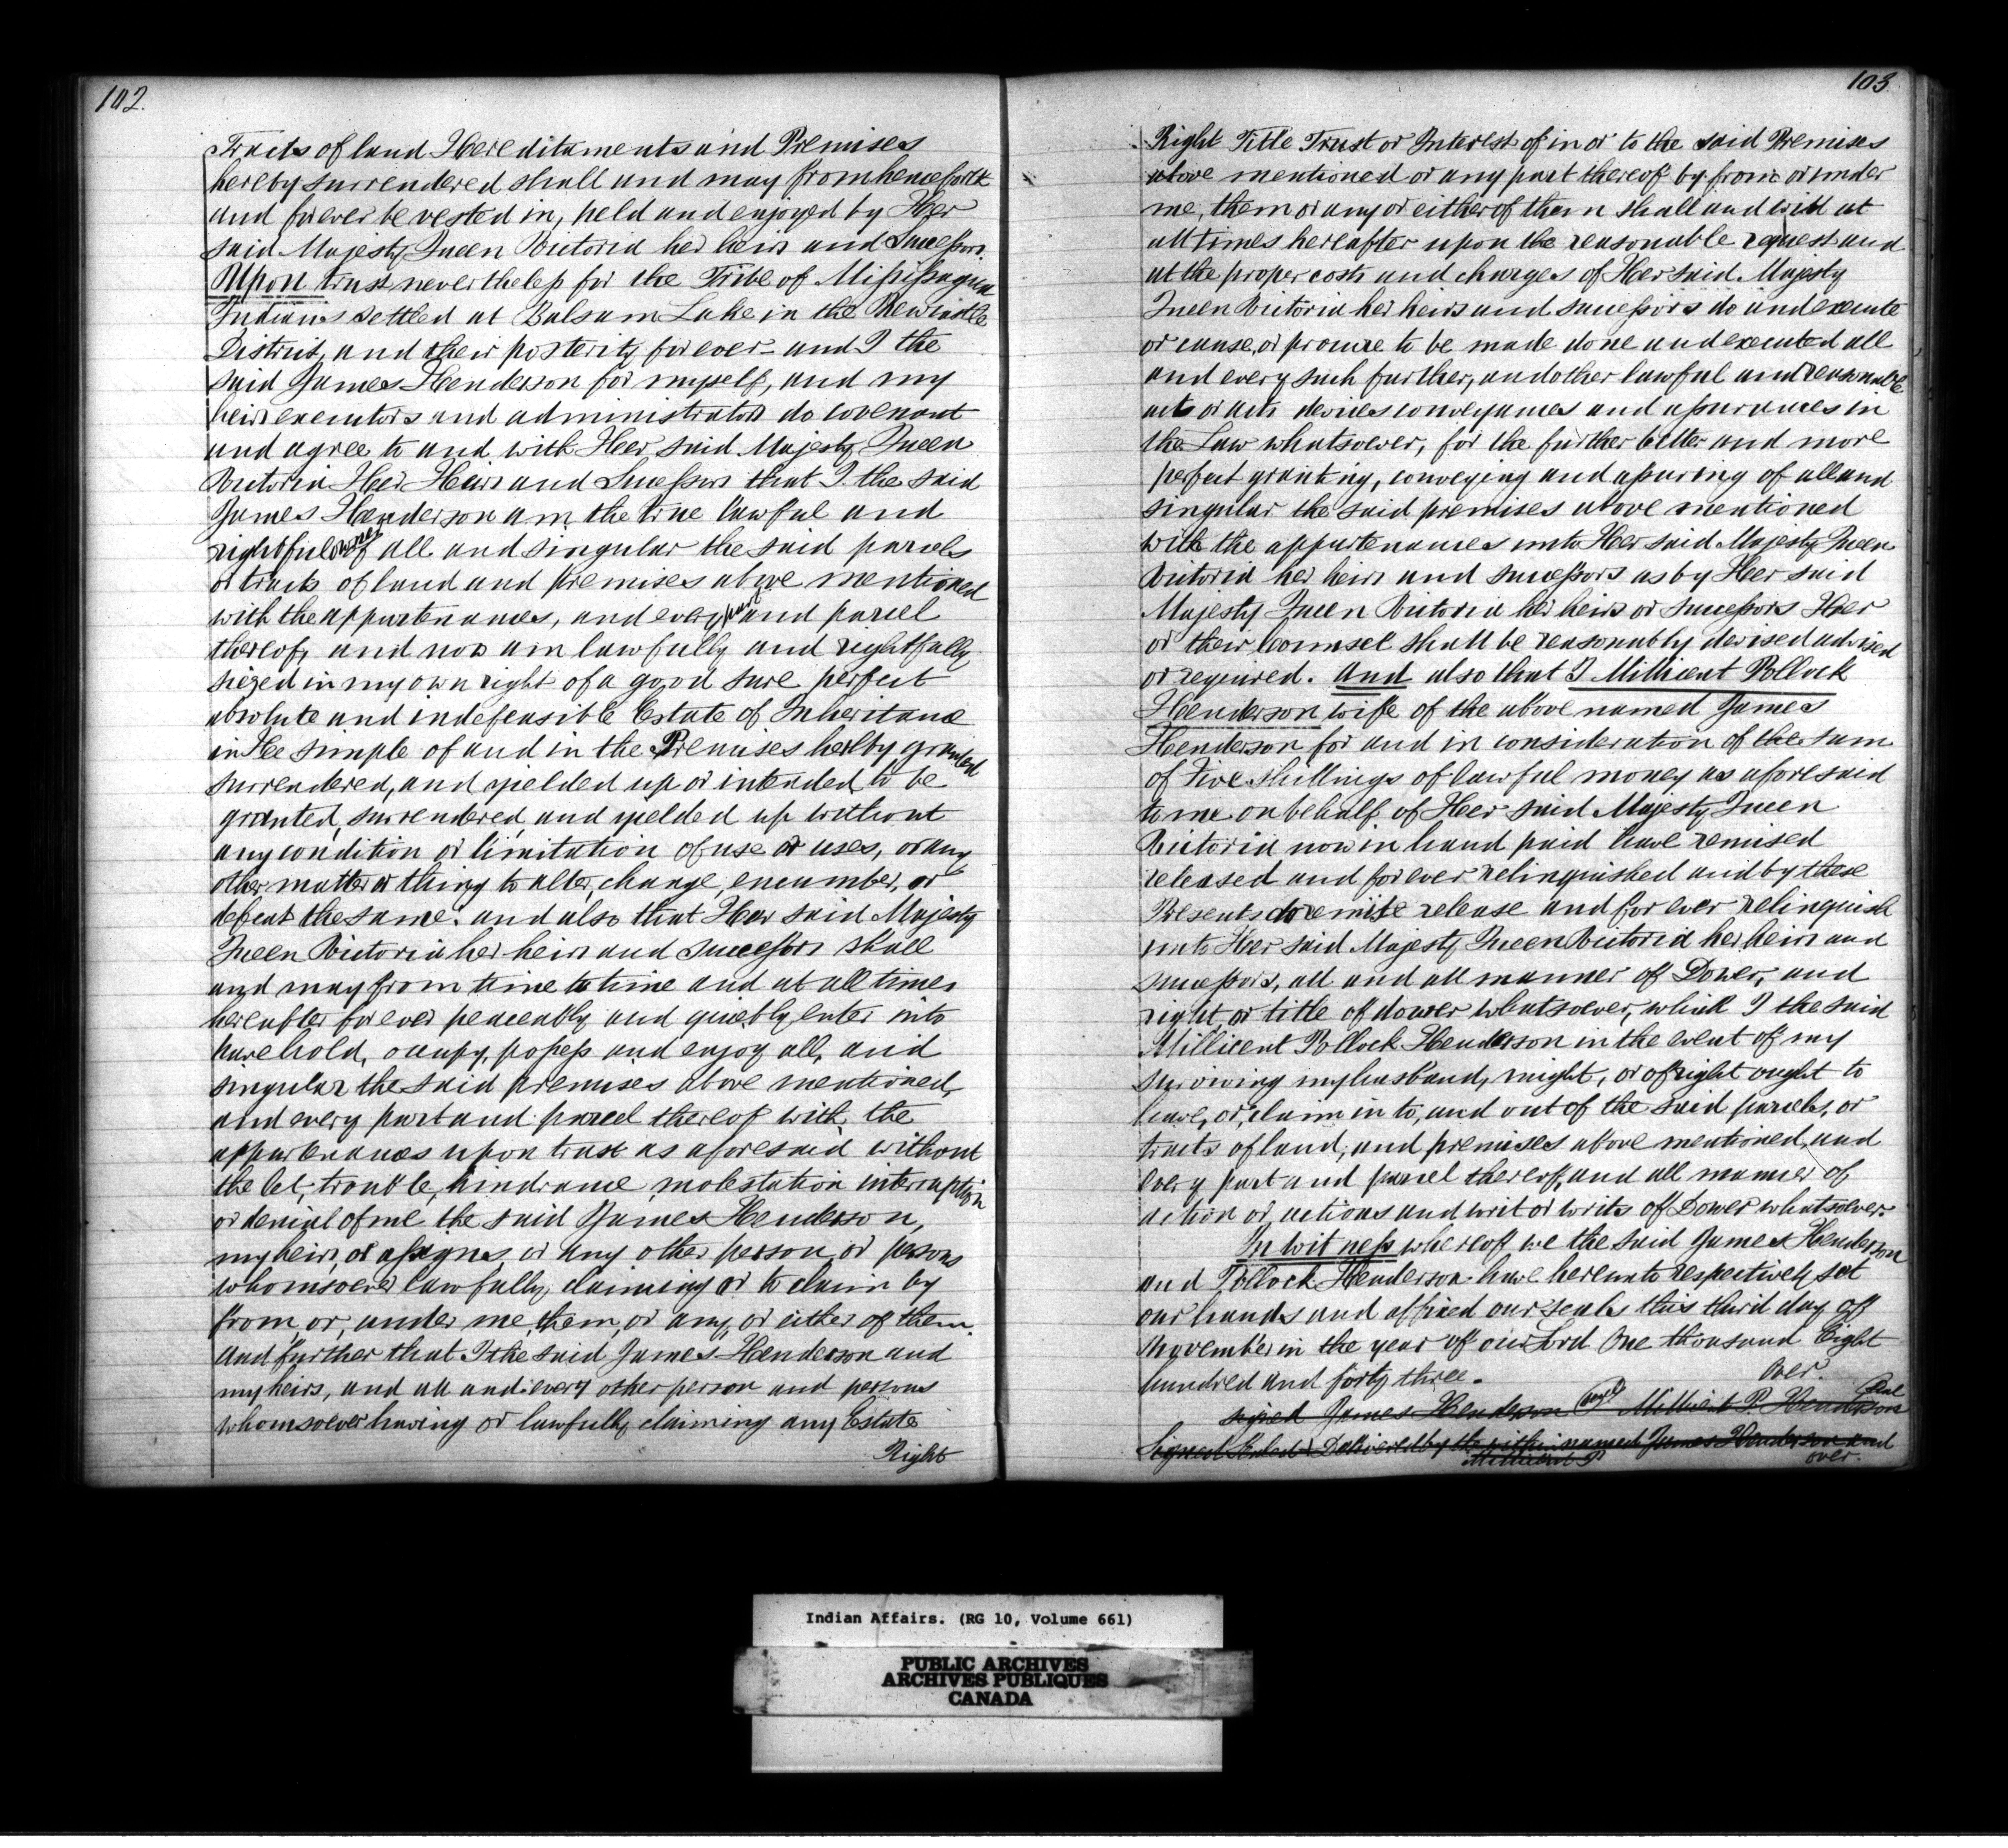 102.
Tracts of land Hereditaments and Premises
hereby surrendered shall and may from henceforth
and forever be vested in, held and enjoyed by Her
said Majesty Queen Victoria her heirs and Successors.
Upon trust nevertheless for the Tribe of Mississagua
Indians settled at Balsam Lake in the Newcastle
District, and their posterity for ever - and I the
said James Henderson for myself, and my
heirs executors and administrators do covenant
and agree to and with Her said Majesty Queen
Victoria Her Heirs and Successors that I the said
James Henderson am the true lawful and
rightful owner of all and singular the said parcels
or tracts of land and premises above mentioned
with the appurtenances, and every part and parcel
thereof, and now am lawfully and rightfully
siezed in my own right of a good sure perfect
absolute and indefeasible Estate of Inheritance
in Fee simple of and in the Premises hereby granted
surrendered, and yielded up or intended to be
granted, surrendered, and yielded up without
any condition or limitation of use or uses, or any
other matter or thing to alter, change, encumber, or
defeat the same. and also that Her said Majesty
Queen Victoria her heirs and successors shall
and may from time to time and at all times
hereafter forever peaceably and quietly enter into
have hold, occupy, possess and enjoy all, and
singular the said premises above mentioned,
and every part and parcel thereof with, the
appurtenances upon trust as aforesaid without
the let, trouble, hindrance, molestation interruption
or denial of me the said James Henderson,
my heirs, or assigns, or any other person, or persons
whomsoever lawfully, claiming or to claim by
from, or, under me, them, or any, or either of them.
And further that I the said James Henderson and
my heirs, and all and every other person and persons
whomsoever having or lawfully claiming any Estate
Right
103
Right Title Trust or Interest of in or to the said Premises
above mentioned or any part thereof by from or under
me, them or any or either of them shall and will at
all times hereafter upon the reasonable request and
at the proper costs and charges of Her said Majesty
Queen Victoria her heirs and successors do and execute
or cause, or procure to be made done and executed all
and every such further, and other lawful and reasonable
acts or acts devices conveyances and assurances in
the Law whatsoever, for the further better and more
perfect granting, conveying and assuring of all and
singular the said premises above mentioned
with the appurtenances unto Her said Majesty Queen
Victoria her heirs and successors as by Her said
Majesty Queen Victoria her heirs or successors Her
or their Counsel shall be reasonably devised advised
or required. And also that I Millicent Pollock
Henderson wife of the above named James
Henderson for and in consideration of the sum
of Five shillings of lawful money as aforesaid
to me on behalf of Her said Majesty Queen
Victoria now in hand paid have remised
released and forever relinquished and by these
Presents do remise release and for ever relinquish
unto Her said Majesty Queen Victoria her heirs and
successors, all and all manner of Dower, and
right, or title of dower whatsoever, which I the said
Millicent Pollock Henderson in the event of my
surviving my husband, might, or of right ought to
have, or, claim in to, and out of the said parcels, or
tracts of land, and premises above mentioned, and
every part and parcel thereof, and all manner of
action or actions and writ or writs of Dower whatsoever.
In witness whereof we the said James Henderson
and Pollock Henderson have hereunto respectively set
our hands and affixed our seals this third day of
November in the year of our Lord One thousand Eight
hundred and forty three.
Over.
signed James Henderson Millicent P. Henderson Seal
Signed Sealed & Delivered by the within named James Henderson and
Millicent P
over.
Indian Affairs. (RG 10, Volume 661)
PUBLIC ARCHIVES
ARCHIVES PUBLIQUES
CANADA